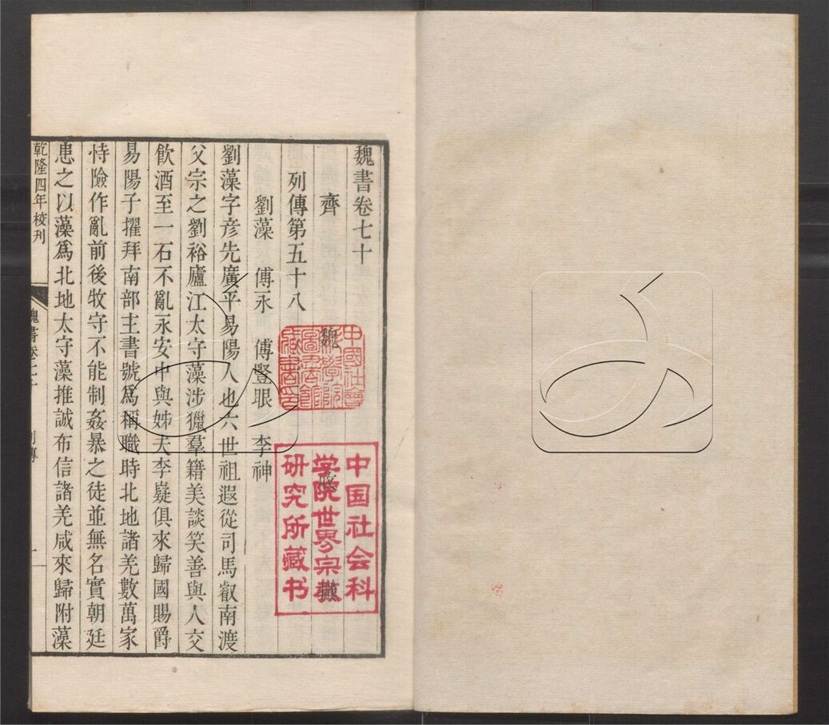 魏書卷七十
齊 魏 收 撰
列傳第五十八
劉藻 傅永 傅豎眼 李神
劉藻字彥先廣平易陽人也六世祖遐從司馬叡南渡
父宗之劉裕廬江太守藻涉獵羣籍美談笑善與人交
飲酒至一石不亂永安中與姊夫李嶷俱來歸國賜爵
易陽子擢拜南部主書號為稱職時北地諸羌數萬家
恃險作亂前後牧守不能制姦暴之徒並無名實朝廷
患之以藻為北地太守藻推誠布信諸羌咸來歸附藻
乾隆四年校刊
魏書卷七十
列傳
一
中国社会科
学院世界宗教
研究所藏书